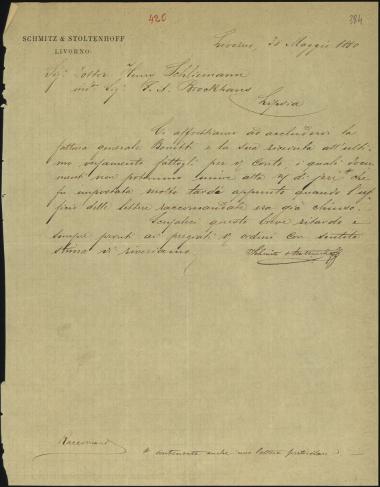 420
384
SCHMITZ & STOLTENHOFF
LIVORNO
Livorno, 30 Maggio 1880
Sig. Dottor Henry Schliemann
ind. Sig. F. A. Brockhaus
Lipsia
Vi affrettiamo ad accludervi la
fattura generale Bonitti e la sua ricevuta all'ulti-
mo versamento fattogli per Conto, i quali docu-
menti non potemmo unire alla di jeri che
fu impostata molto tarda appunto quando l'uf-
fizio delle lettere raccomandate era già chiuso.
Scusateci questo breve ritardo e
sempre pronti ai pregiati ordini con sentita
stima vi riveriamo
Schmitz & Stoltenhoff
Raccomand
contenente anche una lettera particolare